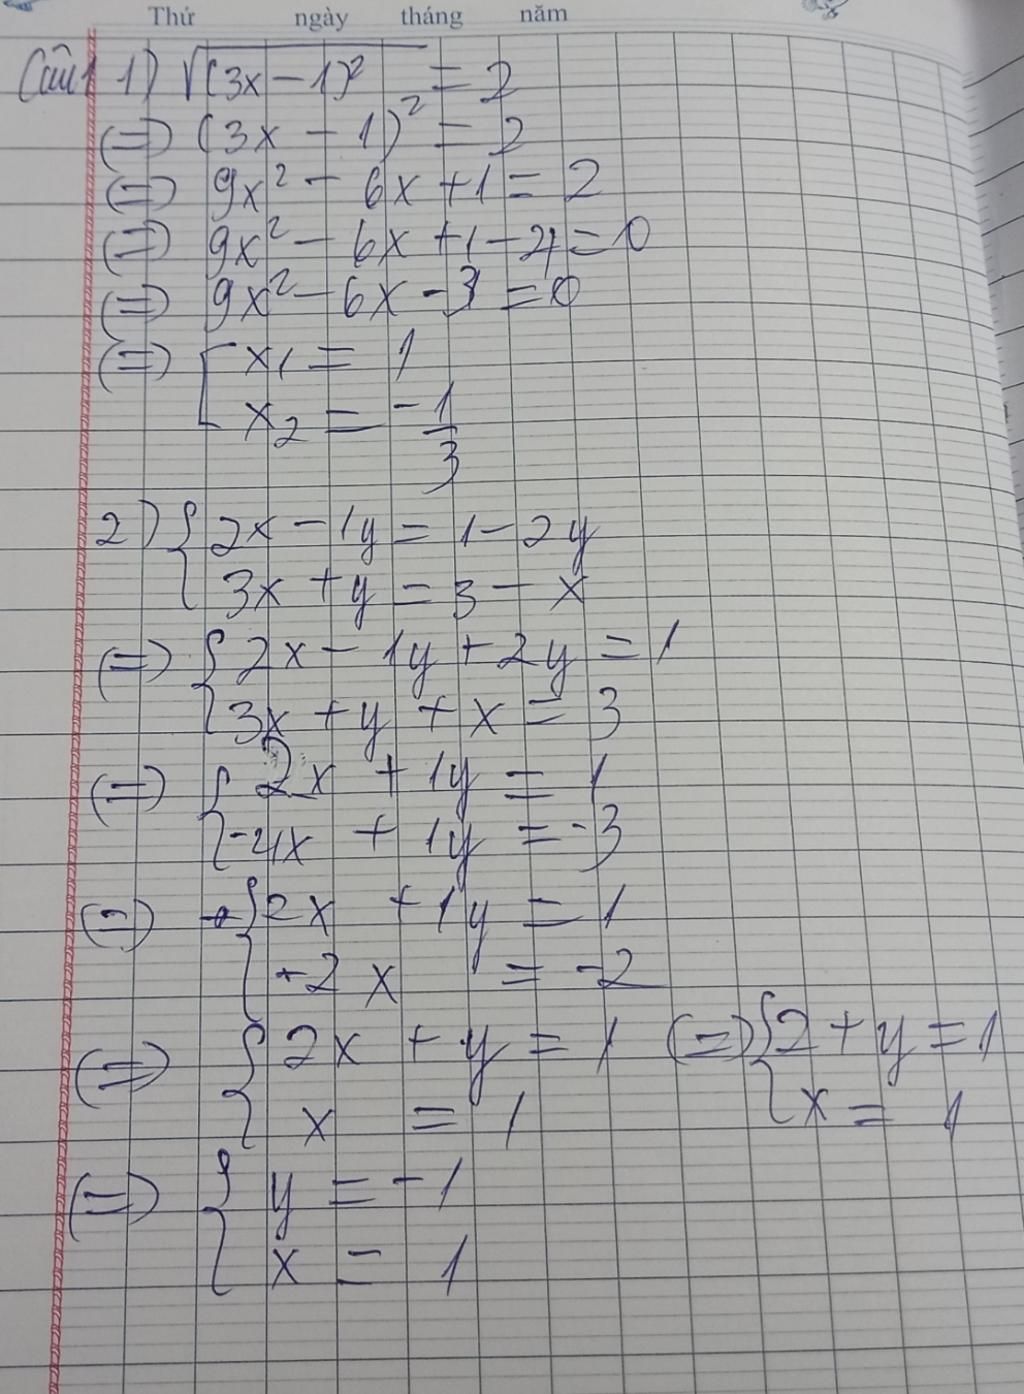 Thứ ngày tháng năm
Câu 1 1) √(3x - 1)² = 2
(=) (3x - 1)² = 2
(=) 9x² - 6x + 1 = 2
(=) 9x² - 6x + 1 - 4 = 0
(=) 9x² - 6x - 3 = 0
(=) [ x₁ = 1
x₂ = -1/3
2) { 2x - 1y = 1 - 2y
3x + y = 3 - x
(=) { 2x - 1y + 2y = 1
3x + y + x = 3
(=) { 2x + 1y = 1
-4x + 1y = -3
(=) { 2x + 1y = 1
-2x = -2
(=) { 2x + y = 1 (=) { 2 + y = 1
x = 1 x = 1
(=) { y = -1
x = 1